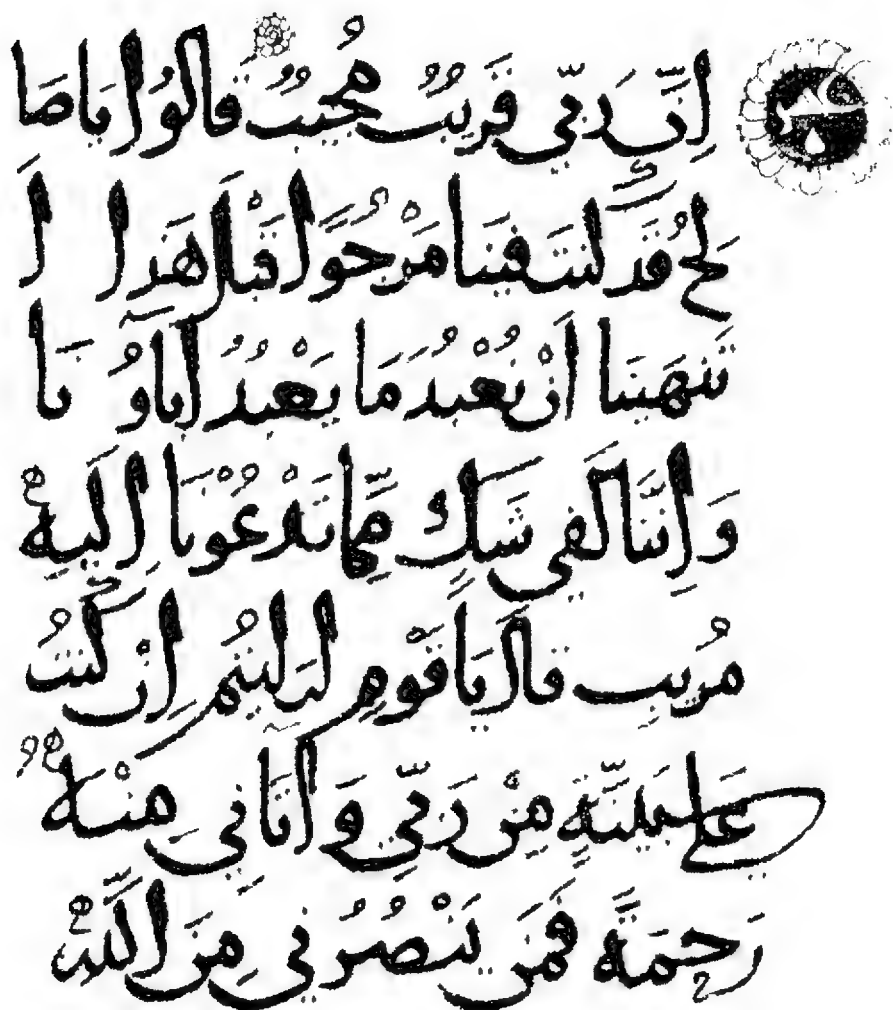 إِنَّ رَبِّي قَرِيبٌ مُجِيبٌ قَالُوا يَا صَا
لِحُ قَدْ كُنْتَ فِينَا مَرْجُوًّا قَبْلَ هَذَا أَ
تَنْهَينَا أَنْ نَعْبُدَ مَا يَعْبُدُ آبَاوُنَا
وَإِنَّنَا لَفِي شَكٍّ مِمَّا تَدْعُونَا إِلَيْهِ
مُرِيبٍ قَالَ يَا قَوْمِ أَرَايْتُمْ إِنْ كُنْتُ
عَلَى بَيِّنَةٍ مِنْ رَبِّي وَآتَانِي مِنْهُ
رَحْمَةً فَمَنْ يَنْصُرُنِي مِنَ اللَّهِ